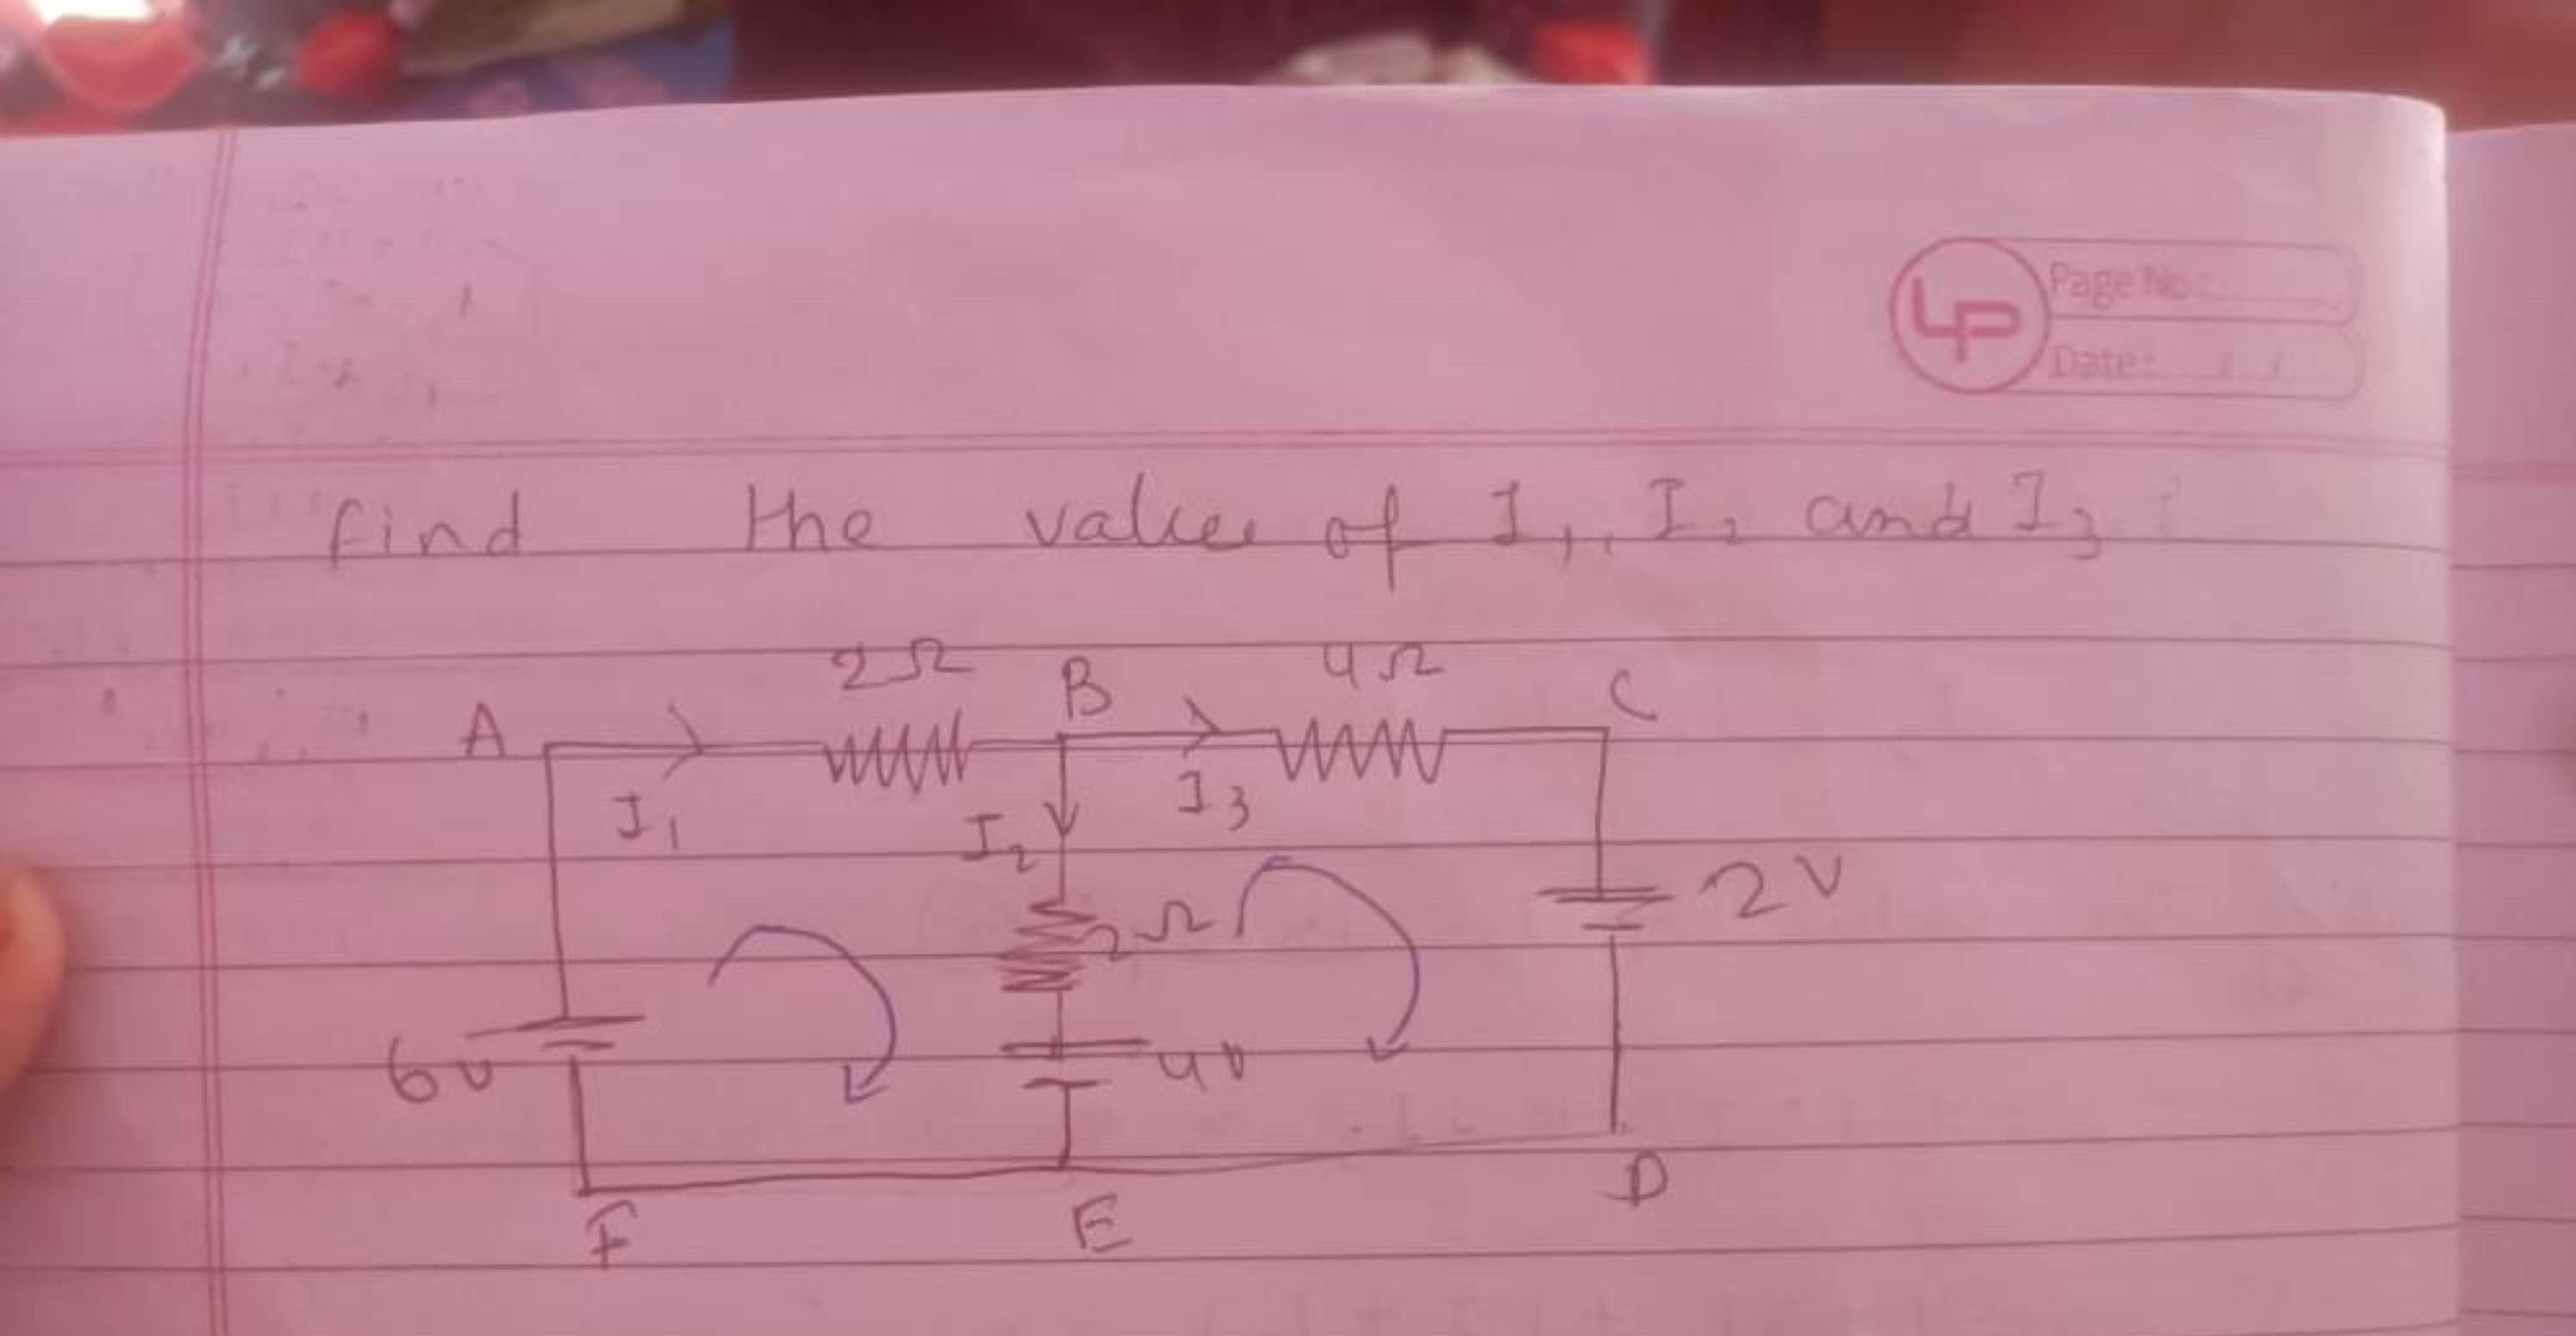 LP
Page No:
Date: / /
find the values of I1, I2 and I3?
2Ω B 4Ω C
A
I1 I2 I3
2V
2Ω
6v 4v
F E D